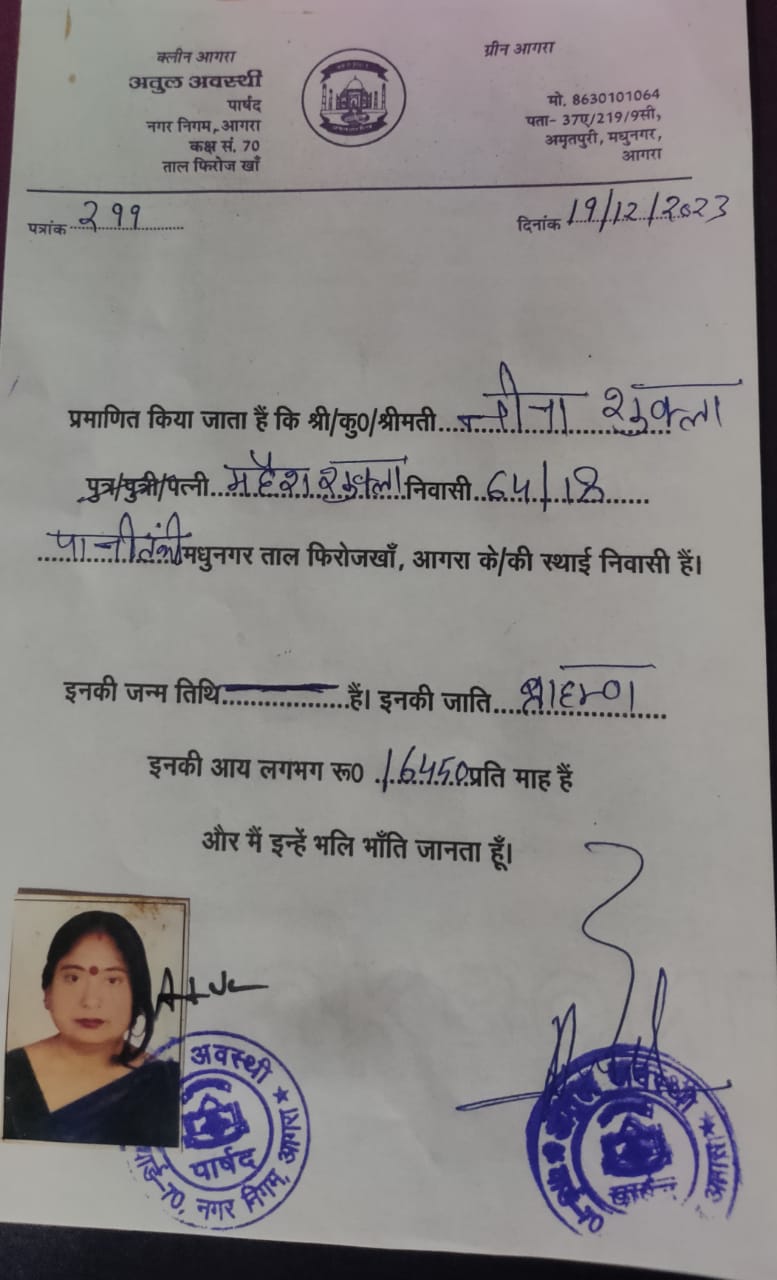 क्लीन आगरा
ग्रीन आगरा
अतुल अवस्थी
पार्षद
नगर निगम, आगरा
कक्ष सं. 70
ताल फिरोज खाँ
मो. 8630101064
पता- 37ए/219/9सी,
अमृतपुरी, मधुनगर,
आगरा
पत्रांक 299
दिनांक 19/12/2023
प्रमाणित किया जाता हैं कि श्री/कु0/श्रीमती..... शुक्ला
पुत्र/पुत्री/पत्नी महेश शुक्ला निवासी 64/18
पानी टंकी मधुनगर ताल फिरोजखाँ, आगरा के/की स्थाई निवासी हैं।
इनकी जन्म तिथि..................हैं। इनकी जाति ब्राहमण
इनकी आय लगभग रू0 16450 प्रति माह हैं
और मैं इन्हें भलि भाँति जानता हूँ।
अवस्थी
पार्षद
वार्ड-70, नगर निगम, आगरा
अवस्थी
आगरा